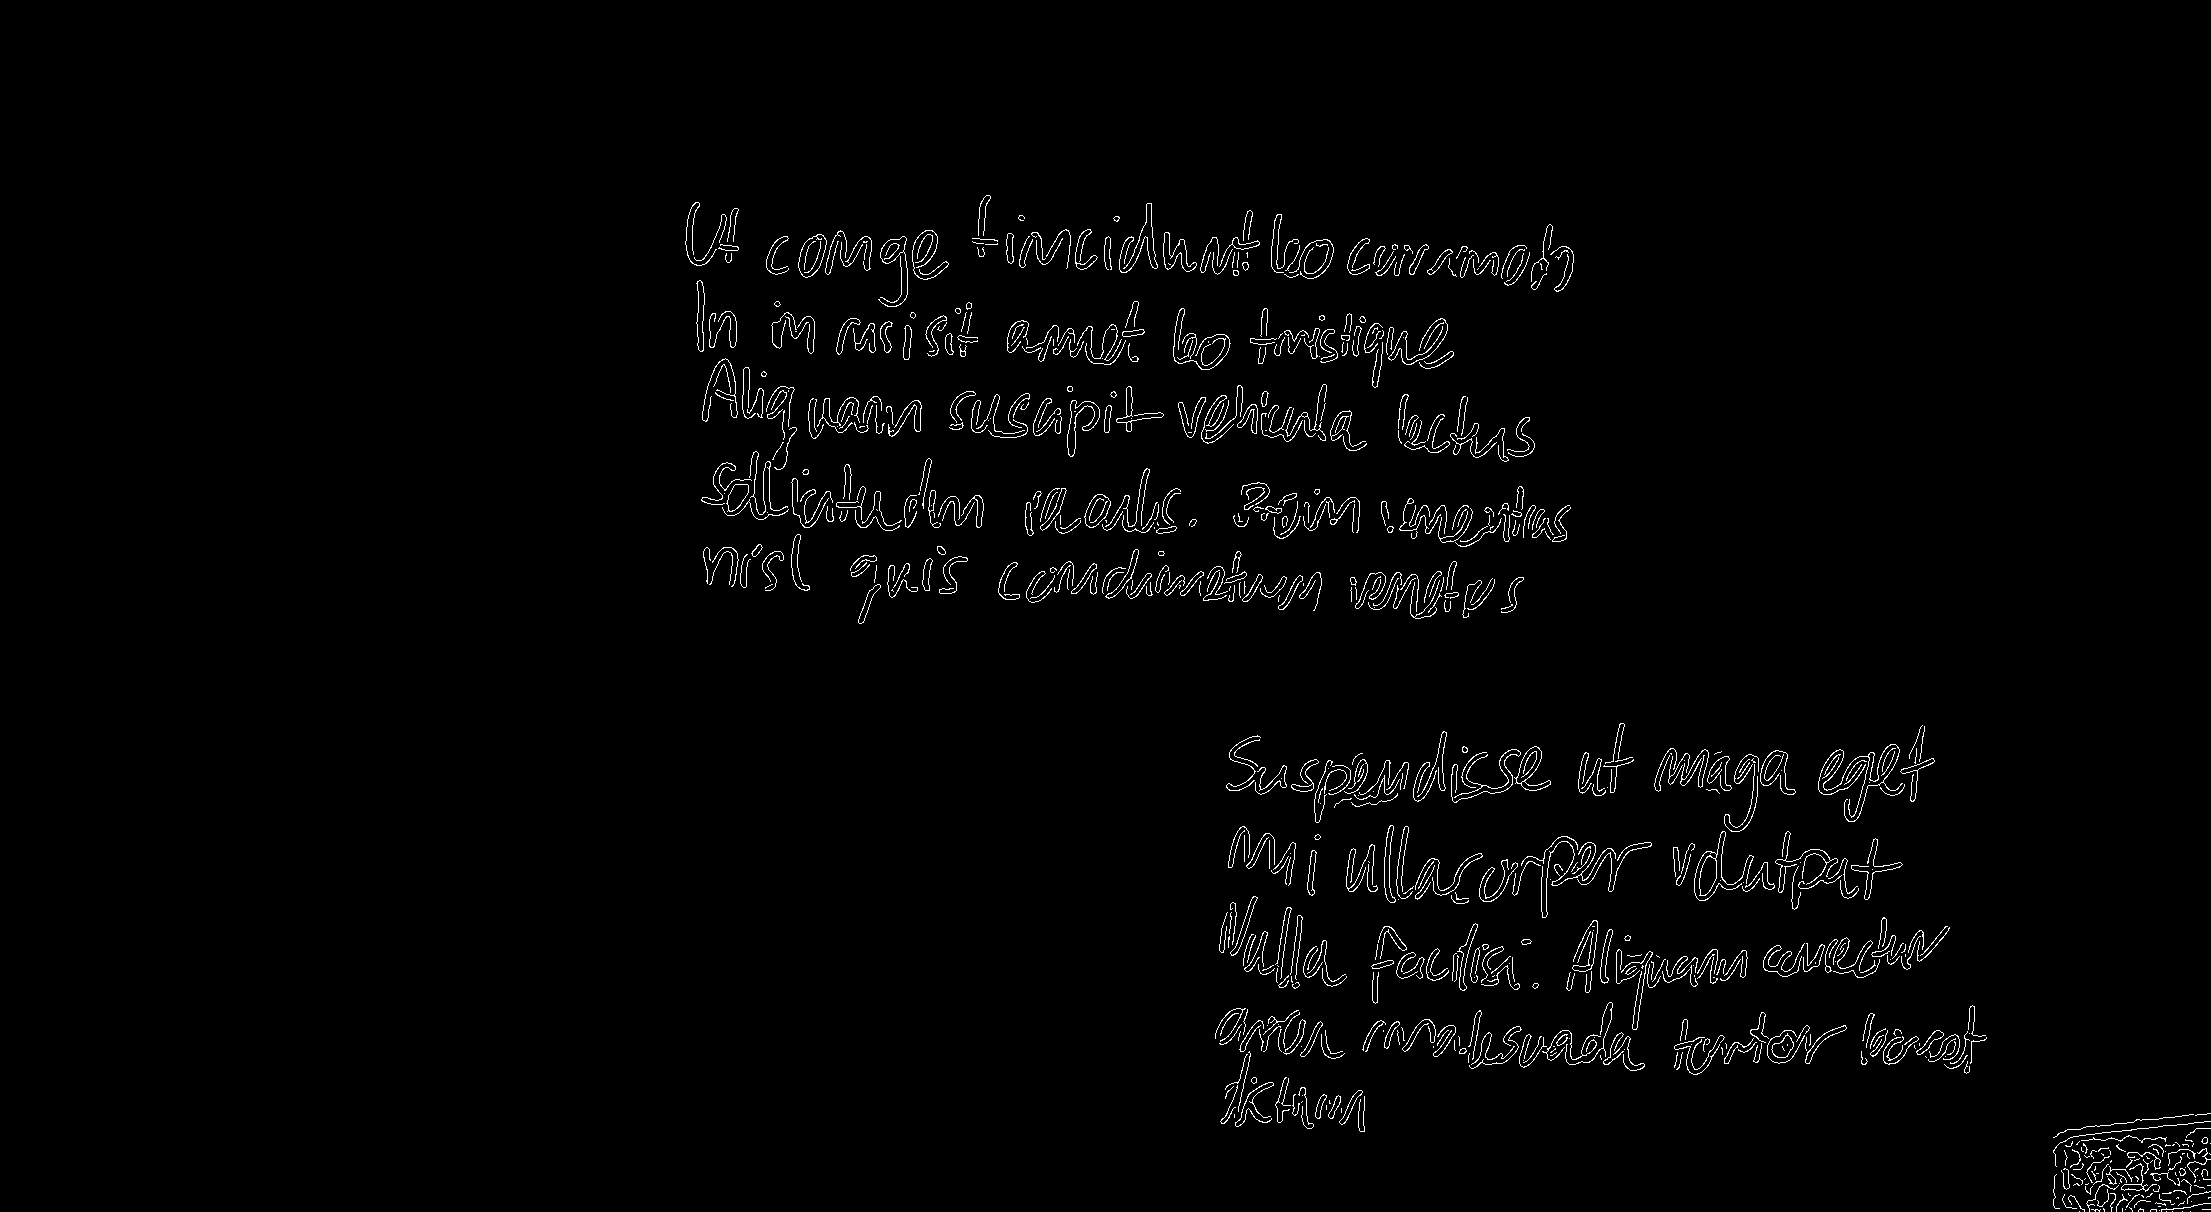 Ut conge tincidunt leo
In in nisi sit amet leo tristique
Aliquam suscipit vehicula lectus
sollicitudin iaculis. Proin
nisl quis condimetum
Suspendisse ut maga eget
mi ullacorper volutpat
Nulla facilisi. Aliquam
arcu malesuada tortor
dictum